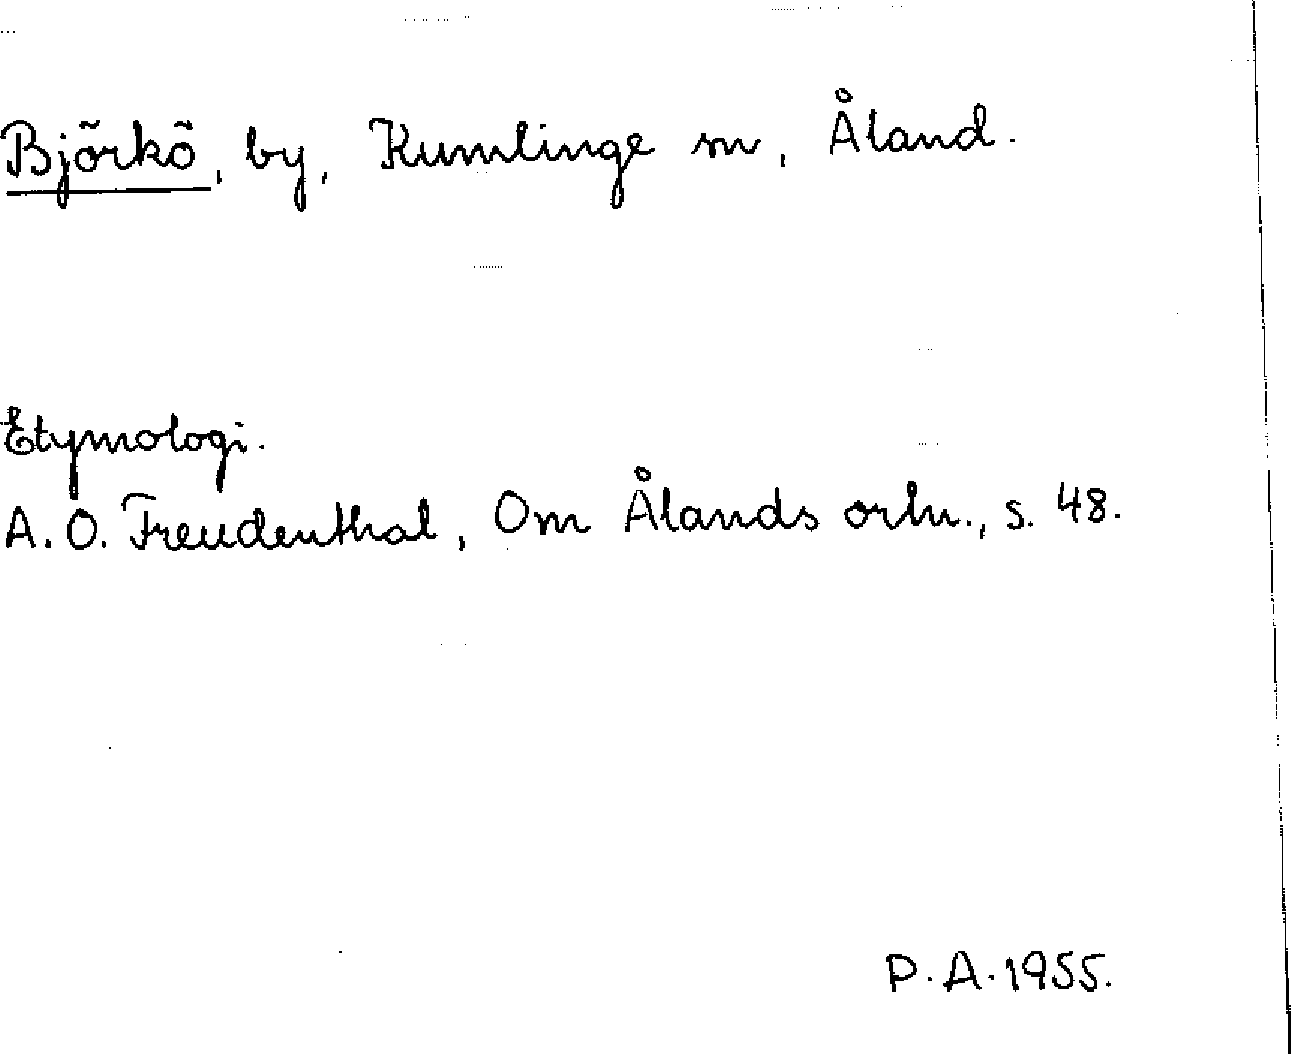 Björkö, by, Kumlinge sn, Åland.
Etymologi.
A. O. Freudenthal, Om Ålands ortn., s. 48.
P. A. 1955.